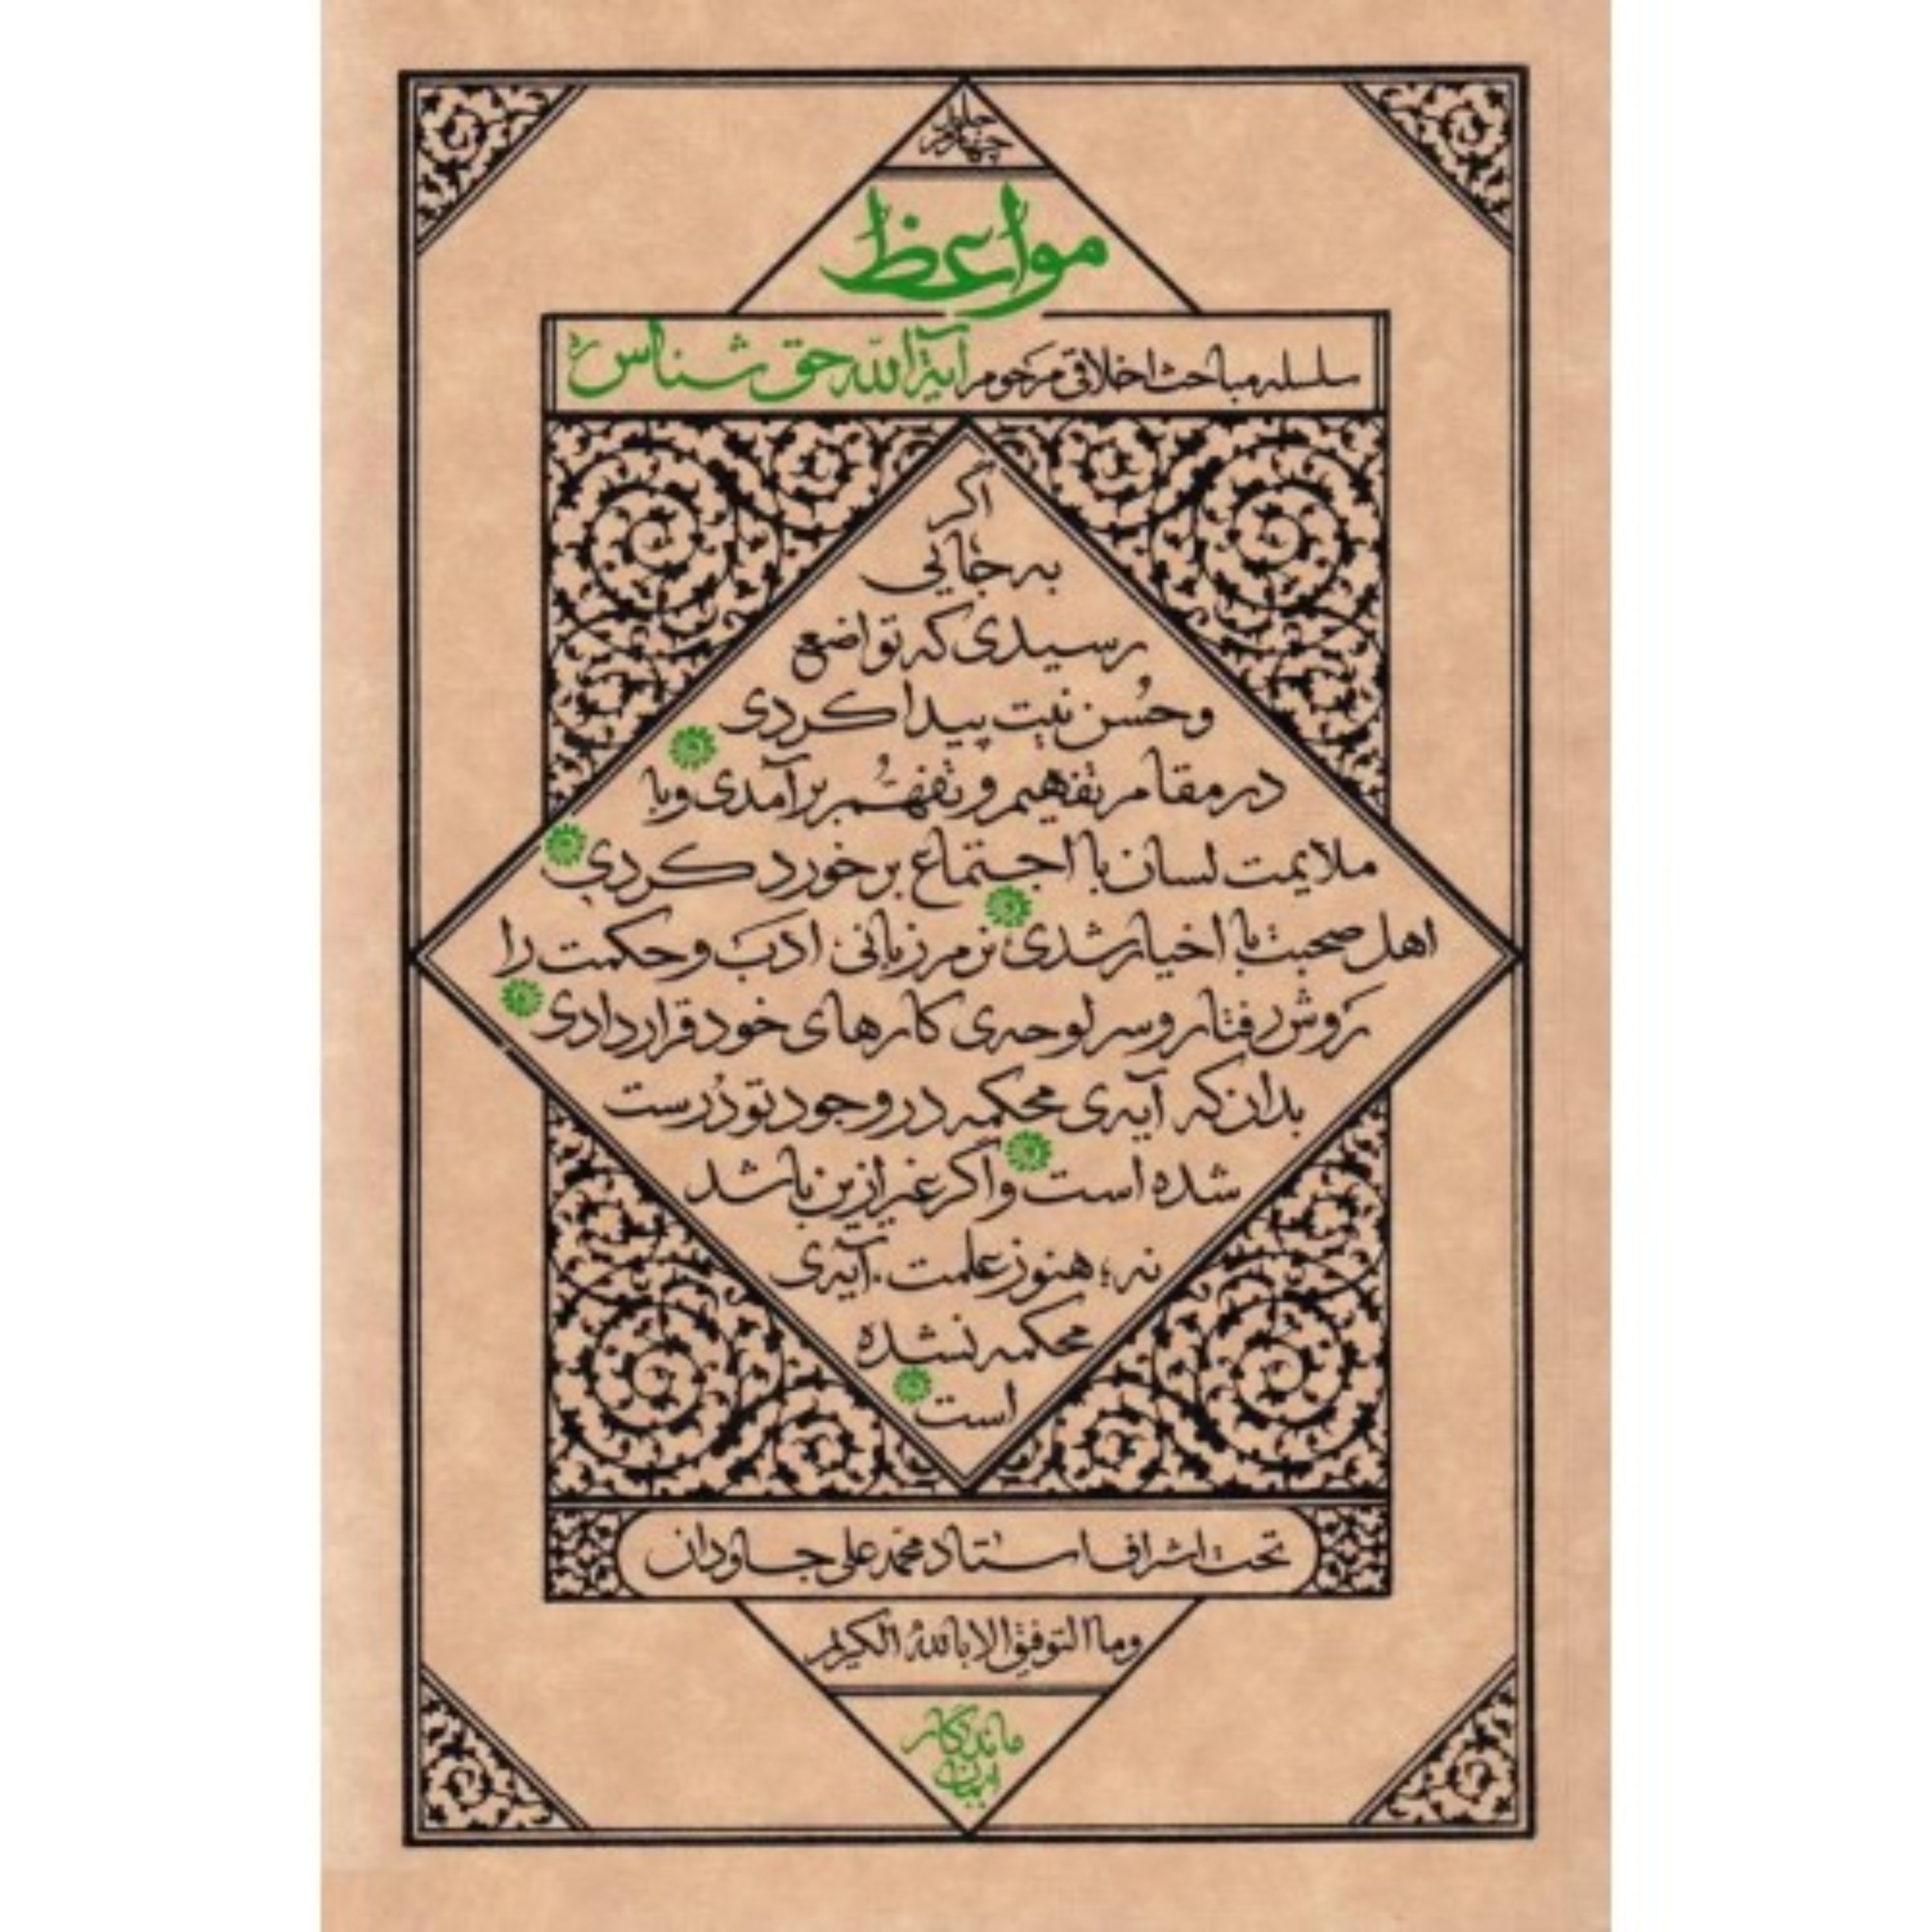 جلد چهارم
مواعظ
سلسله مباحث اخلاقی مرحوم آیة الله حق شناس ره
اگر
به جایی
رسیدی که تواضع
و حُسن نیت پیدا کردی
در مقام تفهیم و تفهُّم برآمدی و با
ملایمت لسان با اجتماع برخورد کردی
اهل صحبت با اخیار شدی نرم زبانی ادب و حکمت را
روش رفتار و سرلوحه‌ی کارهای خود قرار دادی
بدان که آیه‌ی محکمه در وجود تو دُرست
شده است و اگر غیر ازین باشد
نه؛ هنوز علمت، آیه‌ی
محکمه نشده
است
تحت اشراف استاد محمّد علی جاودان
وما التوفیق الا بالله الکریم
ماندگار
ایمان